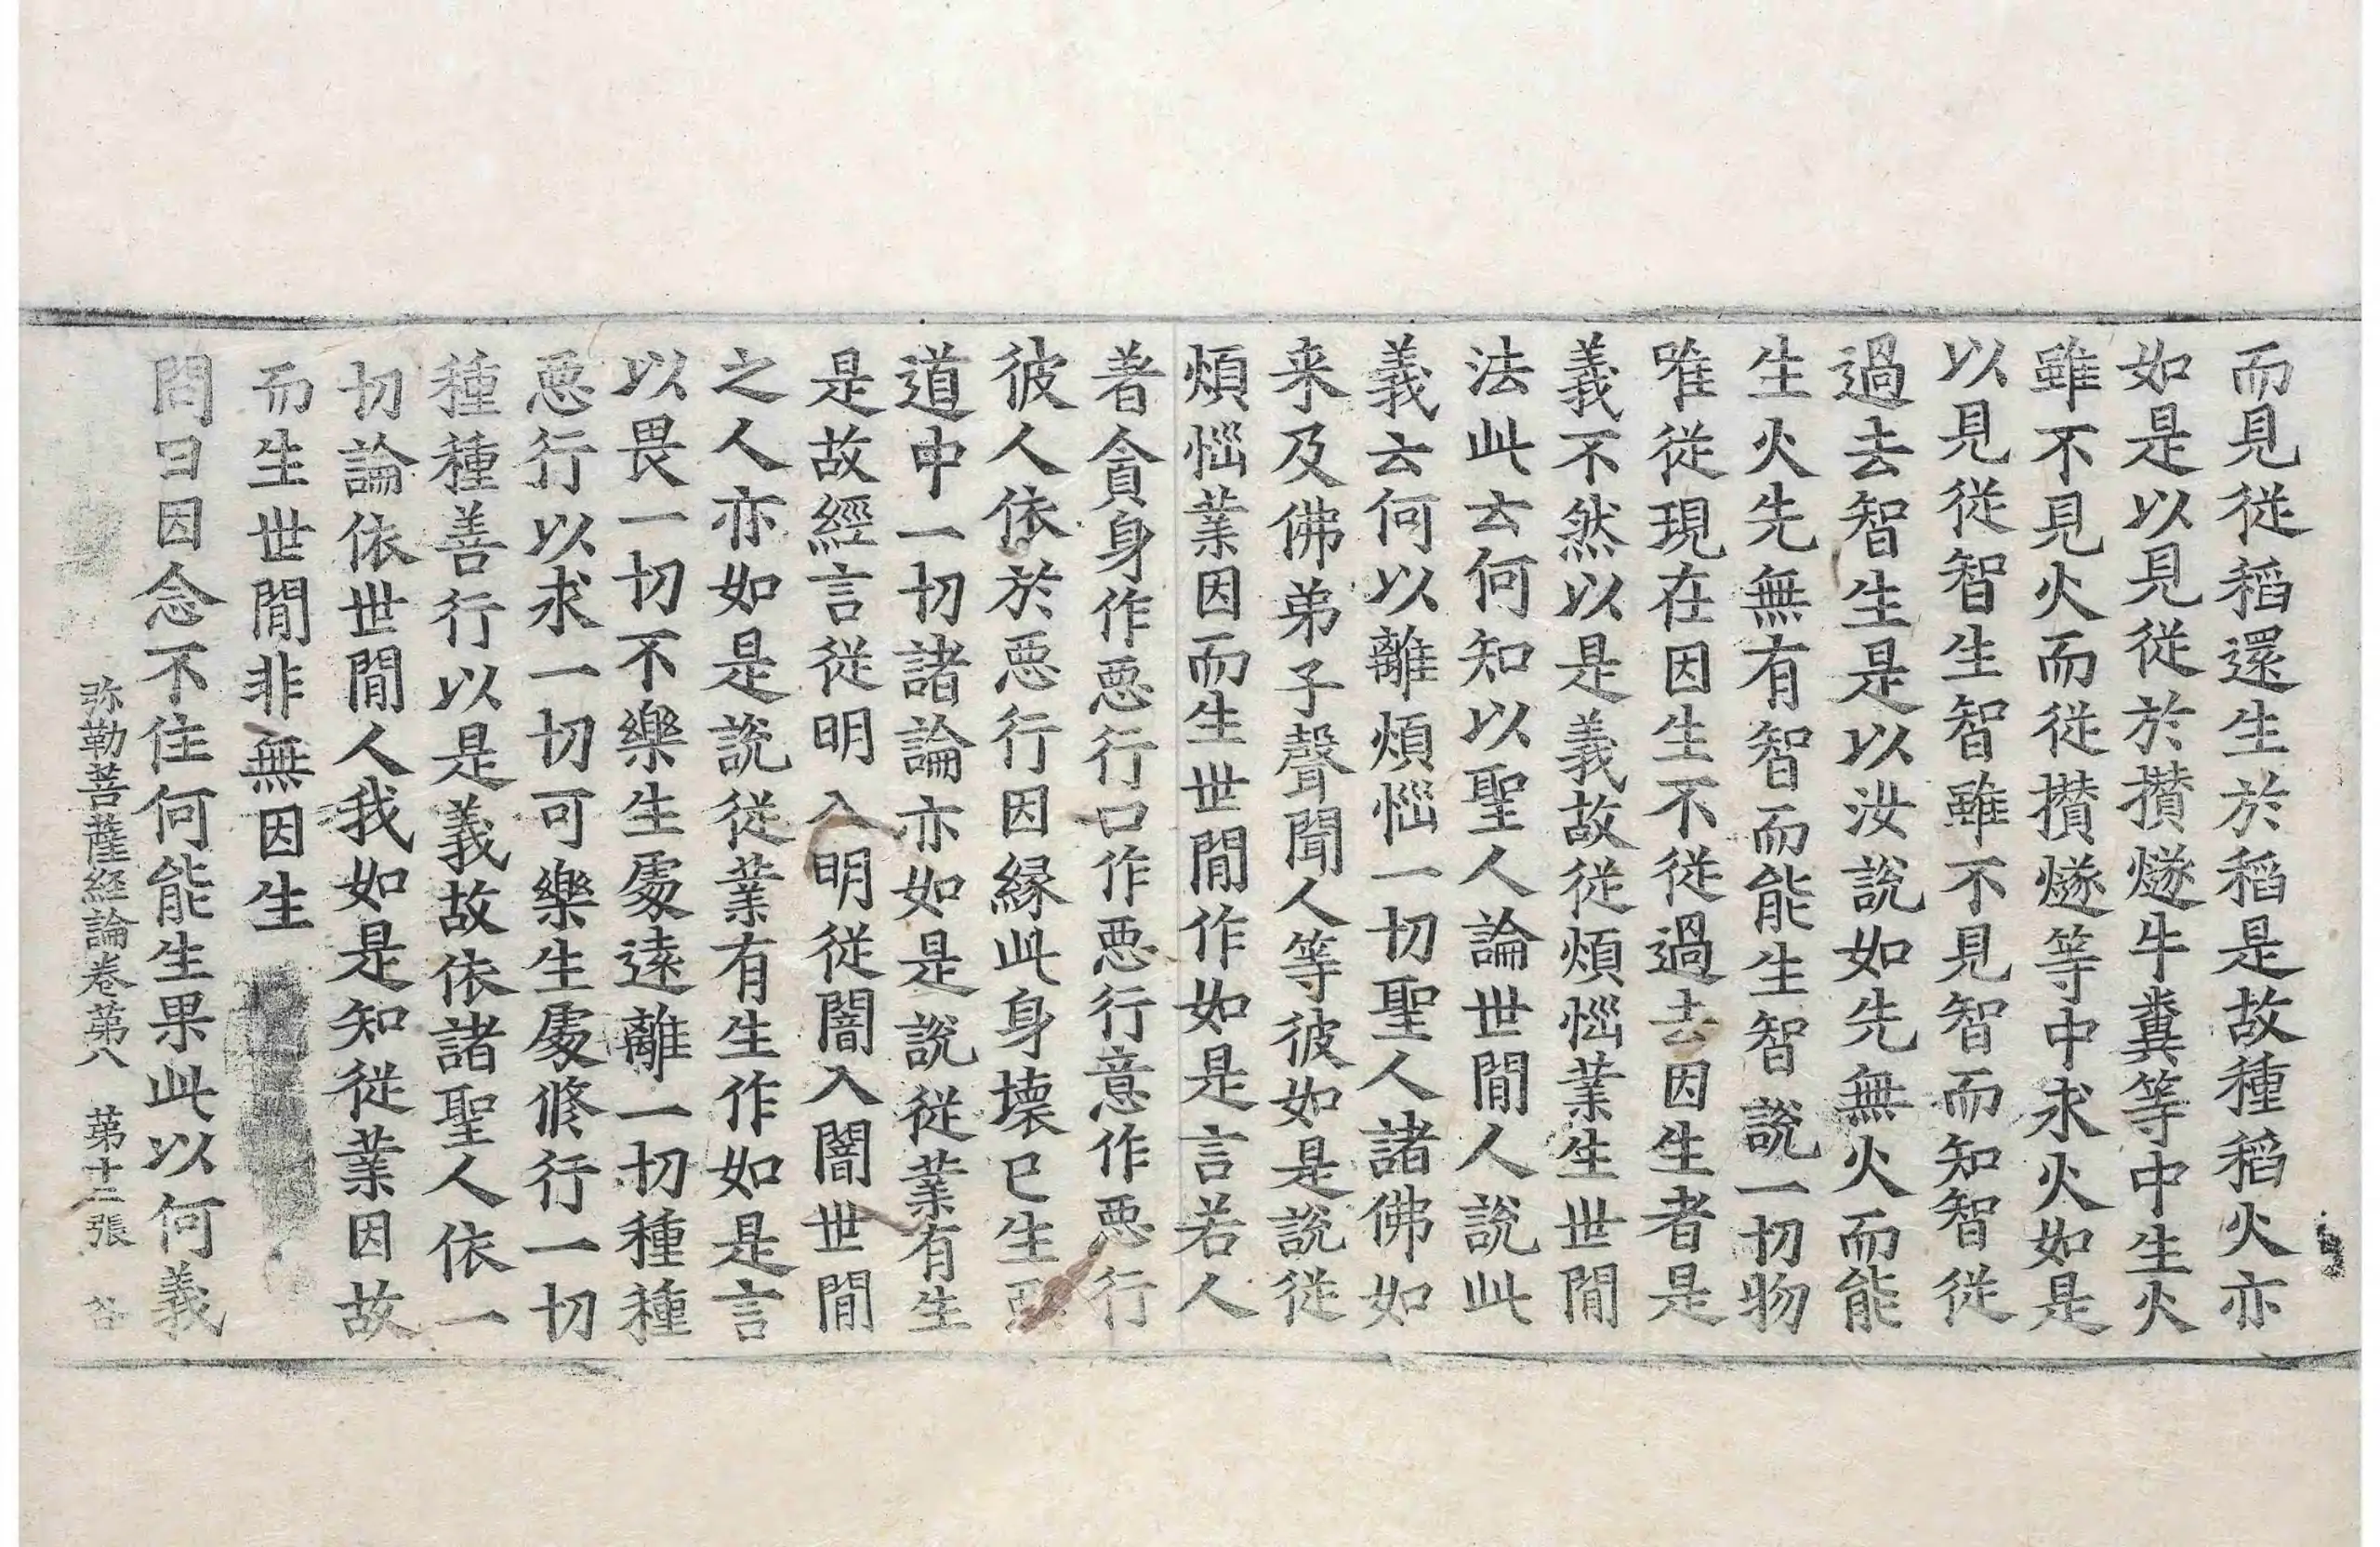 而見從稻還生於稻是故種稻火亦
如是以見從於攅燧牛糞等中生火
雖不見火而從攅燧等中求火如是
以見從智生智雖不見智而知智從
過去智生是以汝說如先無火而能
生火先無有智而能生智說一切物
唯從現在因生不從過去因生者是
義不然以是義故從煩惱業生世閒
法此云何知以聖人論世閒人說此
義云何以離煩惱一切聖人諸佛如
来及佛弟子聲聞人等彼如是說從
煩惱業因而生世閒作如是言若人
著貪身作惡行口作惡行意作惡行
彼人依於惡行因緣此身壞已生惡
道中一切諸論亦如是說從業有生
是故經言從明入明從闇入闇世閒
之人亦如是說從業有生作如是言
以畏一切不樂生處遠離一切種種
惡行以求一切可樂生處修行一切
種種善行以是義故依諸聖人依一
切論依世閒人我如是知從業因故
而生世閒非無因生
問曰因念不住何能生果此以何義
弥勒菩薩経論卷第八　第十二張